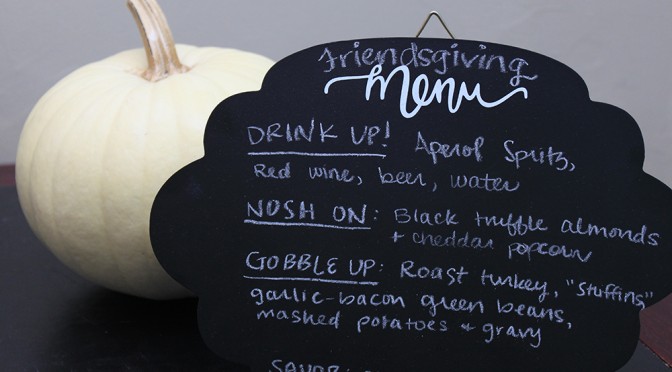 friendsgiving
Menu
DRINK UP! Aperol Spritz,
Red wine, beer, water
NOSH ON: Black truffle almonds
+ cheddar popcorn
GOBBLE UP: Roast turkey, "stuffins"
garlic-bacon green beans,
mashed potatoes + gravy